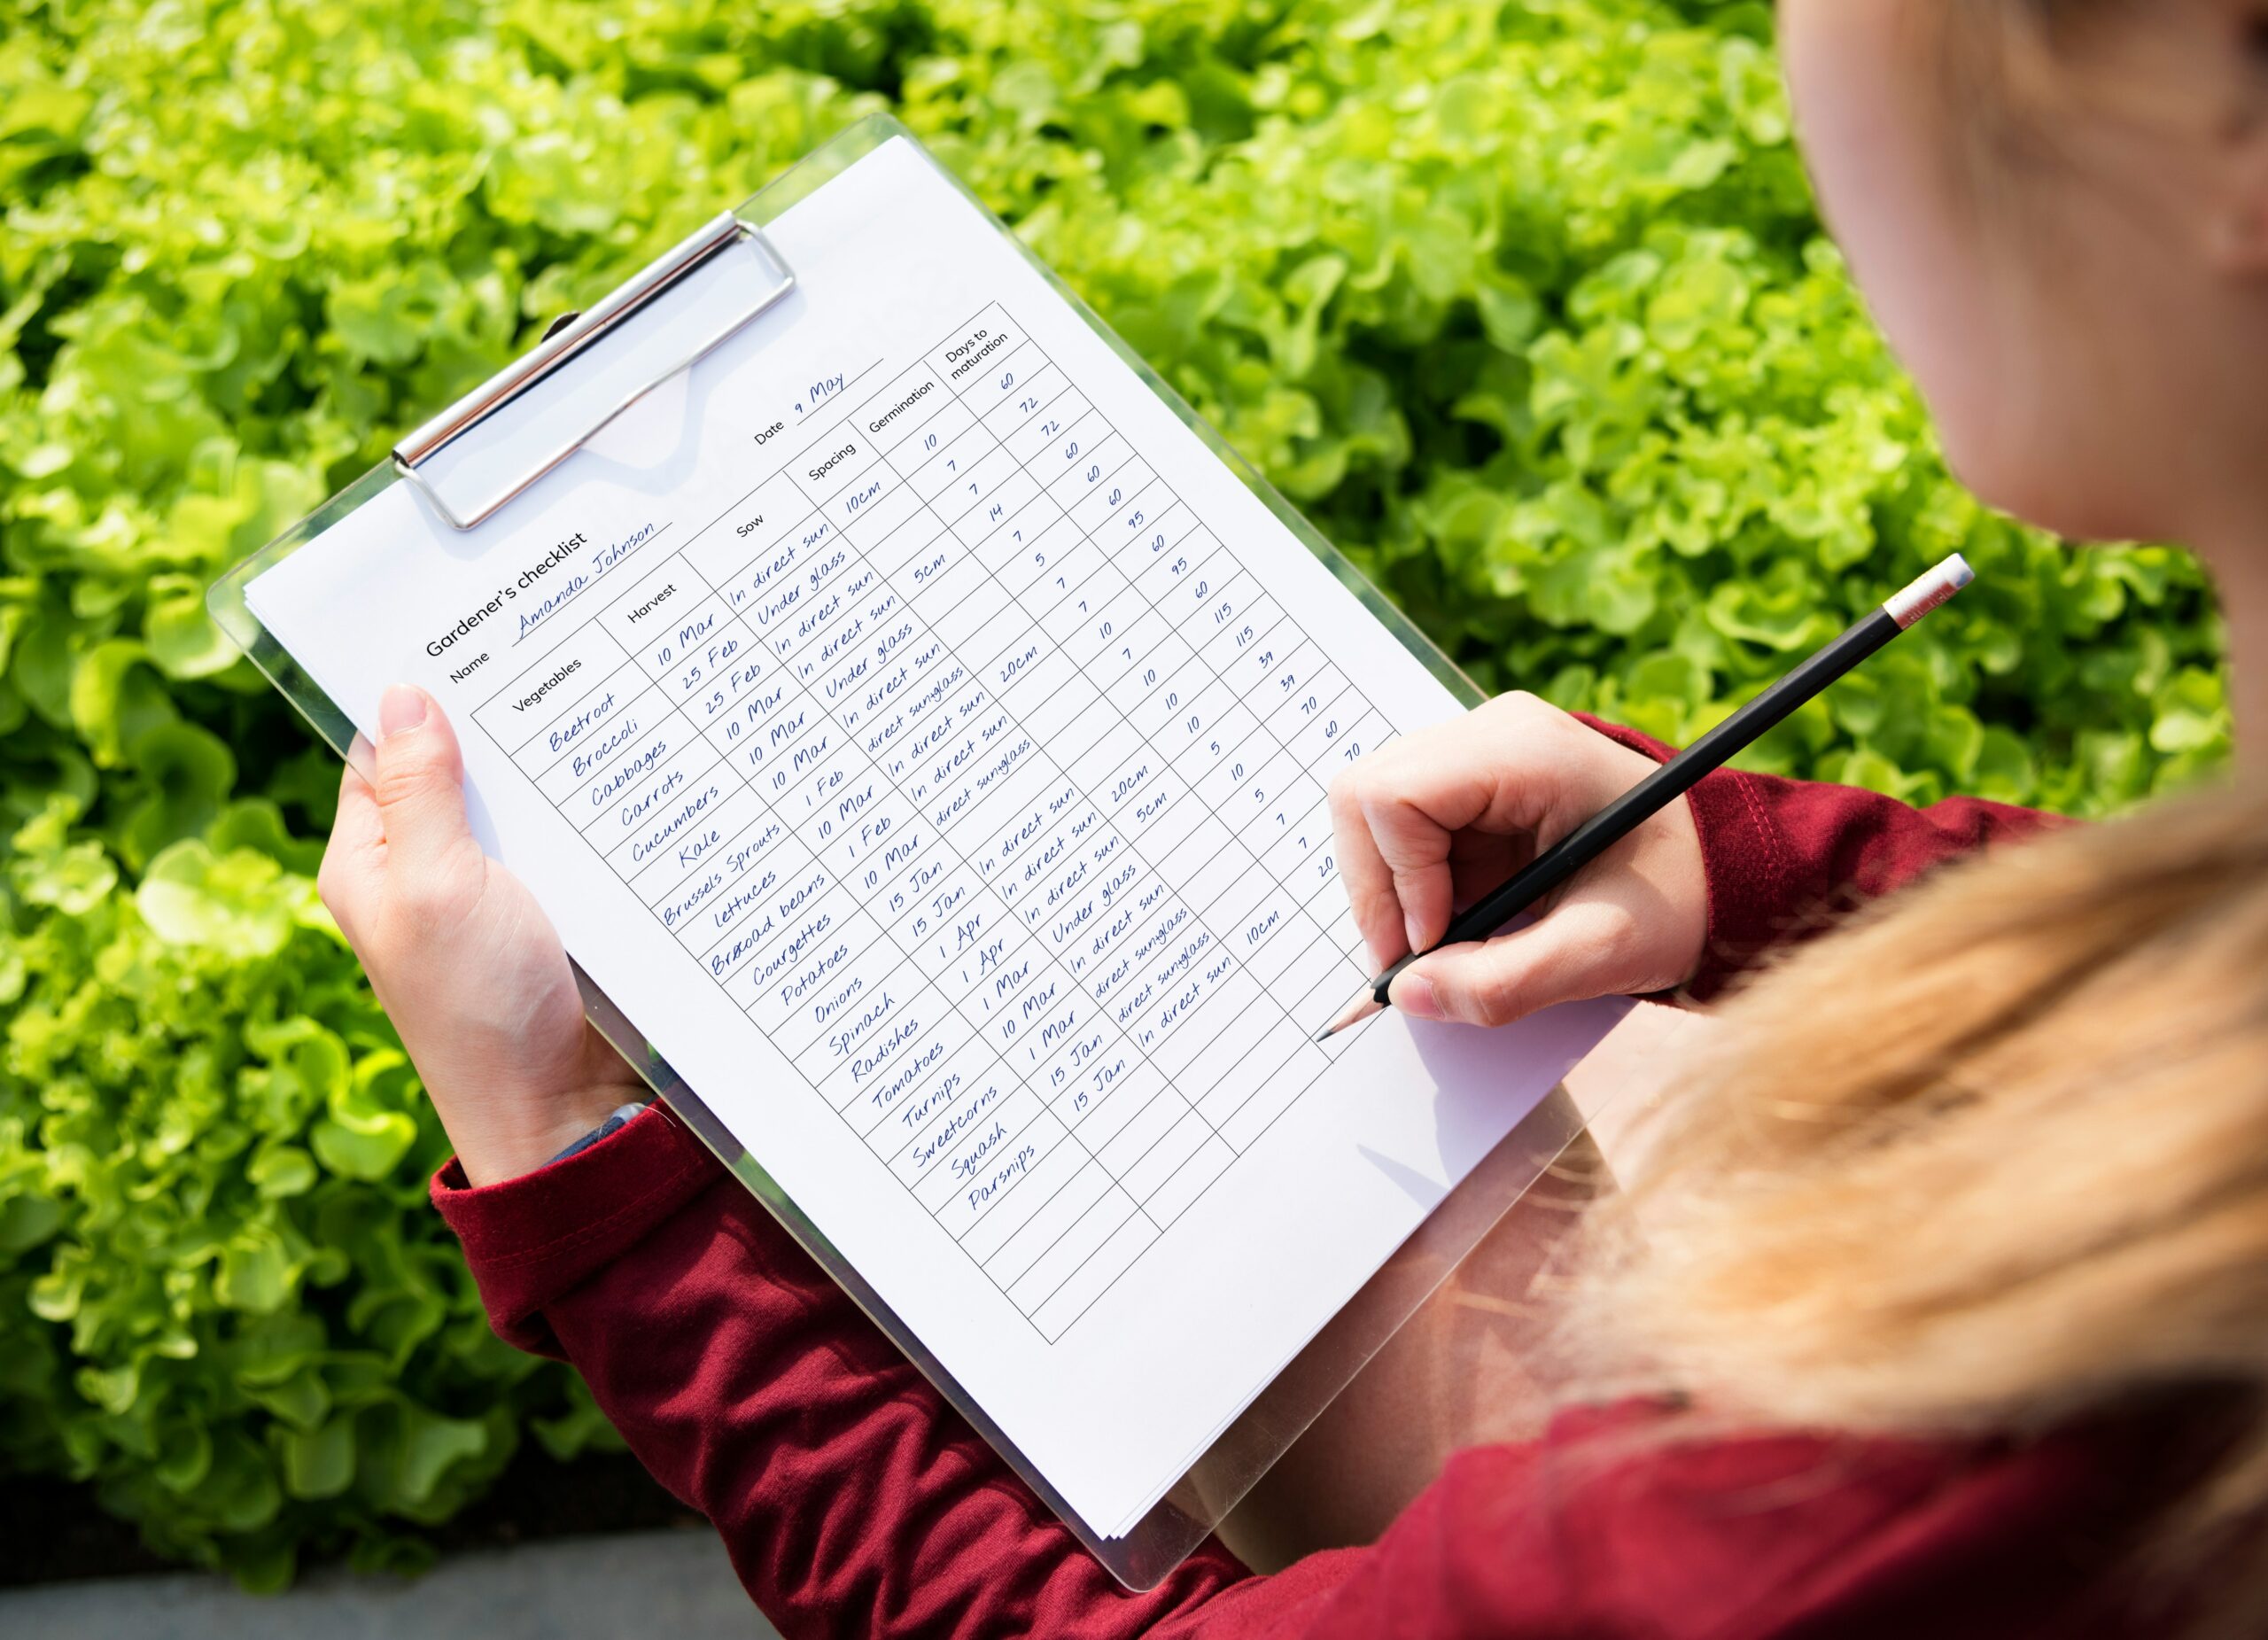 Gardener's checklist
Name Amanda Johnson Date 9 May
Vegetables Harvest Sow Spacing Germination Days to maturation
Beetroot 10 Mar In direct sun 10cm 10 60
Broccoli 25 Feb Under glass 7 72
Cabbages 25 Feb In direct sun 7 72
Carrots 10 Mar In direct sun 5cm 14 60
Cucumbers 10 Mar Under glass 7 60
Kale 10 Mar In direct sun 5 60
Brussels Sprouts 1 Feb direct sun+glass 7 95
Lettuces 10 Mar In direct sun 20cm 7 60
Broad beans 1 Feb In direct sun 10 95
Courgettes 10 Mar direct sun+glass 7 60
Potatoes 15 Jan 10 115
Onions 15 Jan In direct sun 10 115
Spinach 1 Apr In direct sun 20cm 10 39
Radishes 1 Apr In direct sun 5cm 5 39
Tomatoes 1 Mar Under glass 10 70
Turnips 10 Mar In direct sun 5 60
Sweetcorns 1 Mar direct sun+glass 7 70
Squash 15 Jan direct sun+glass 7
Parsnips 15 Jan In direct sun 10cm 20